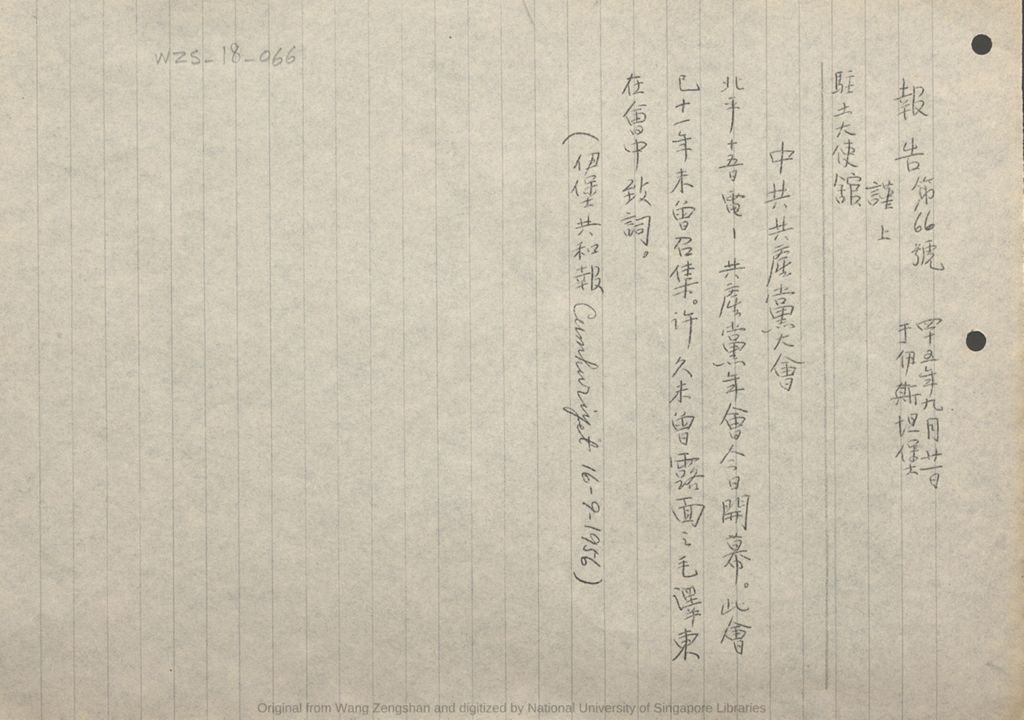 WZS-18-066
報告第66號
四十五年九月廿一日
于伊斯坦堡
謹上
駐土大使館
中共共產黨大會
北平十五日電－共產黨年會今日開幕。此會
已十一年未曾召集。許久未曾露面之毛澤東
在會中致詞。
(伊堡共和報 Cumhuriyet 16-9-1956)
Original from Wang Zengshan and digitized by National University of Singapore Libraries